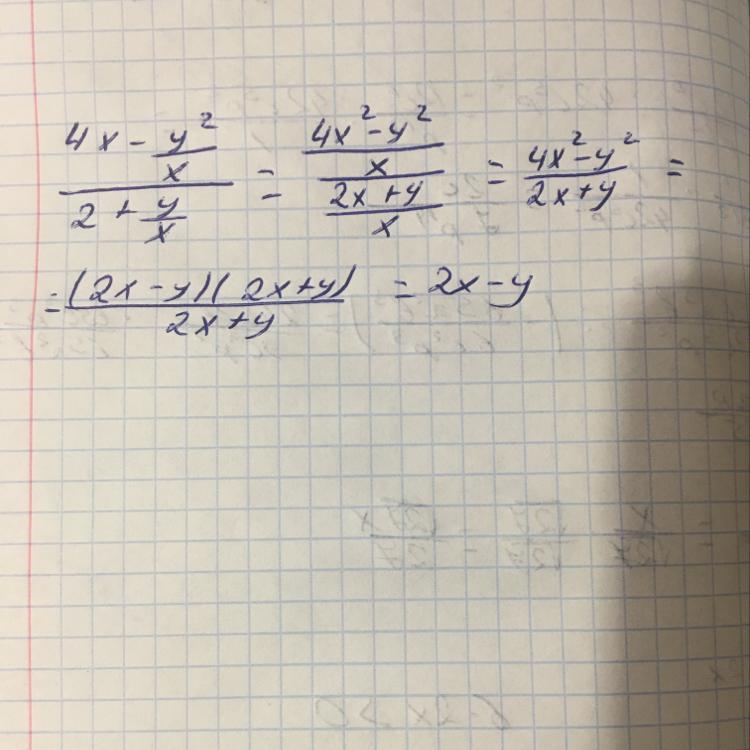 (4x - y²/x)/(2 + y/x) = ((4x² - y²)/x)/((2x + y)/x) = (4x² - y²)/(2x + y) =
= (2x - y)(2x + y)/(2x + y) = 2x - y